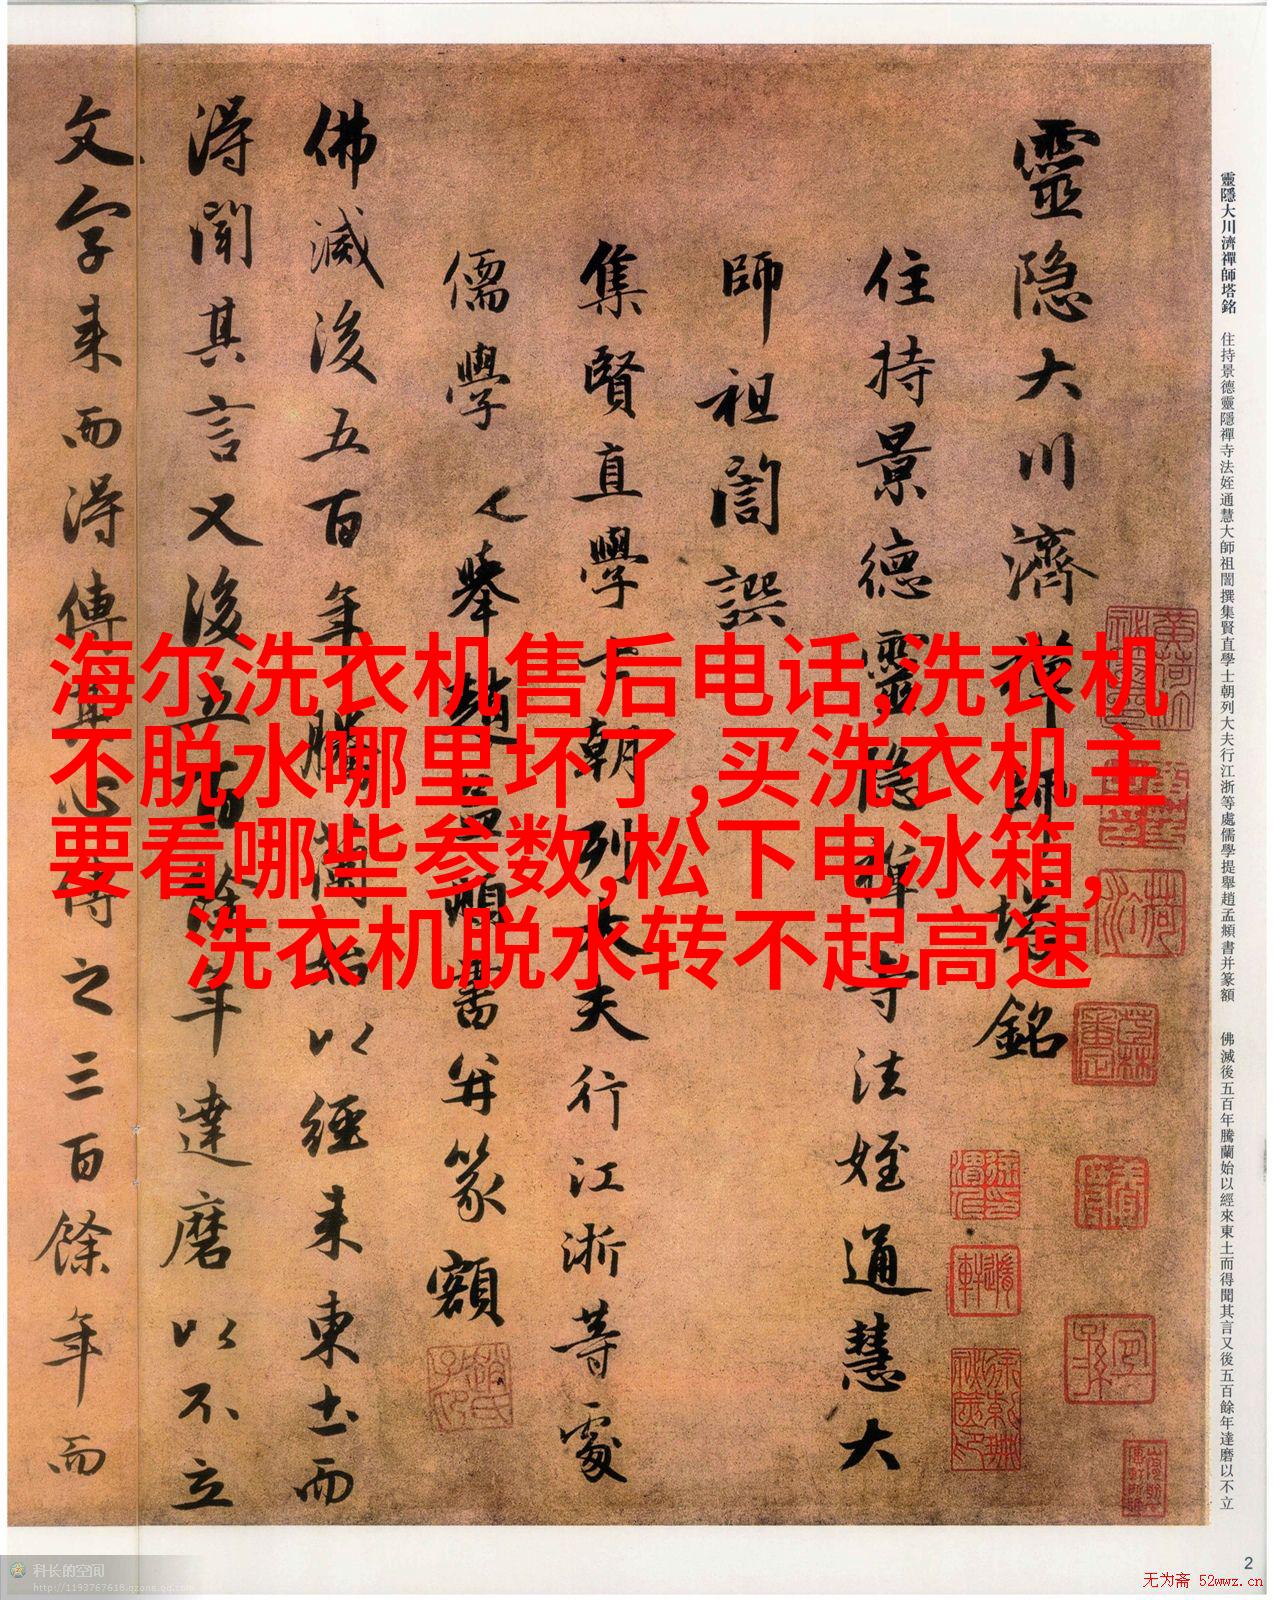 靈隱大川濟禪師塔銘
住持景德靈隱禪寺法姪通慧大
師祖誾譔
集賢直學士朝列大夫行江浙等處
儒學提舉趙孟頫書并篆額
佛滅後五百年騰蘭始以經来東土而
得聞其言又後五百餘年達磨以不立
文字来而得傳其心傳之三百餘年而
靈隱大川濟禪師塔銘 住持景德靈隱禪寺法姪通慧大師祖誾撰集賢直學士朝列大夫行江浙等處儒學提舉趙孟頫書并篆額 佛滅後五百年騰蘭始以經來東土而得聞其言又後五百餘年達磨以不立
海尔洗衣机售后电话,洗衣机
不脱水哪里坏了,买洗衣机主
要看哪些参数,松下电冰箱,
洗衣机脱水转不起高速
2
科长的空间
http://1193767618.qzone.qq.com
无为斋 52wwz.cn